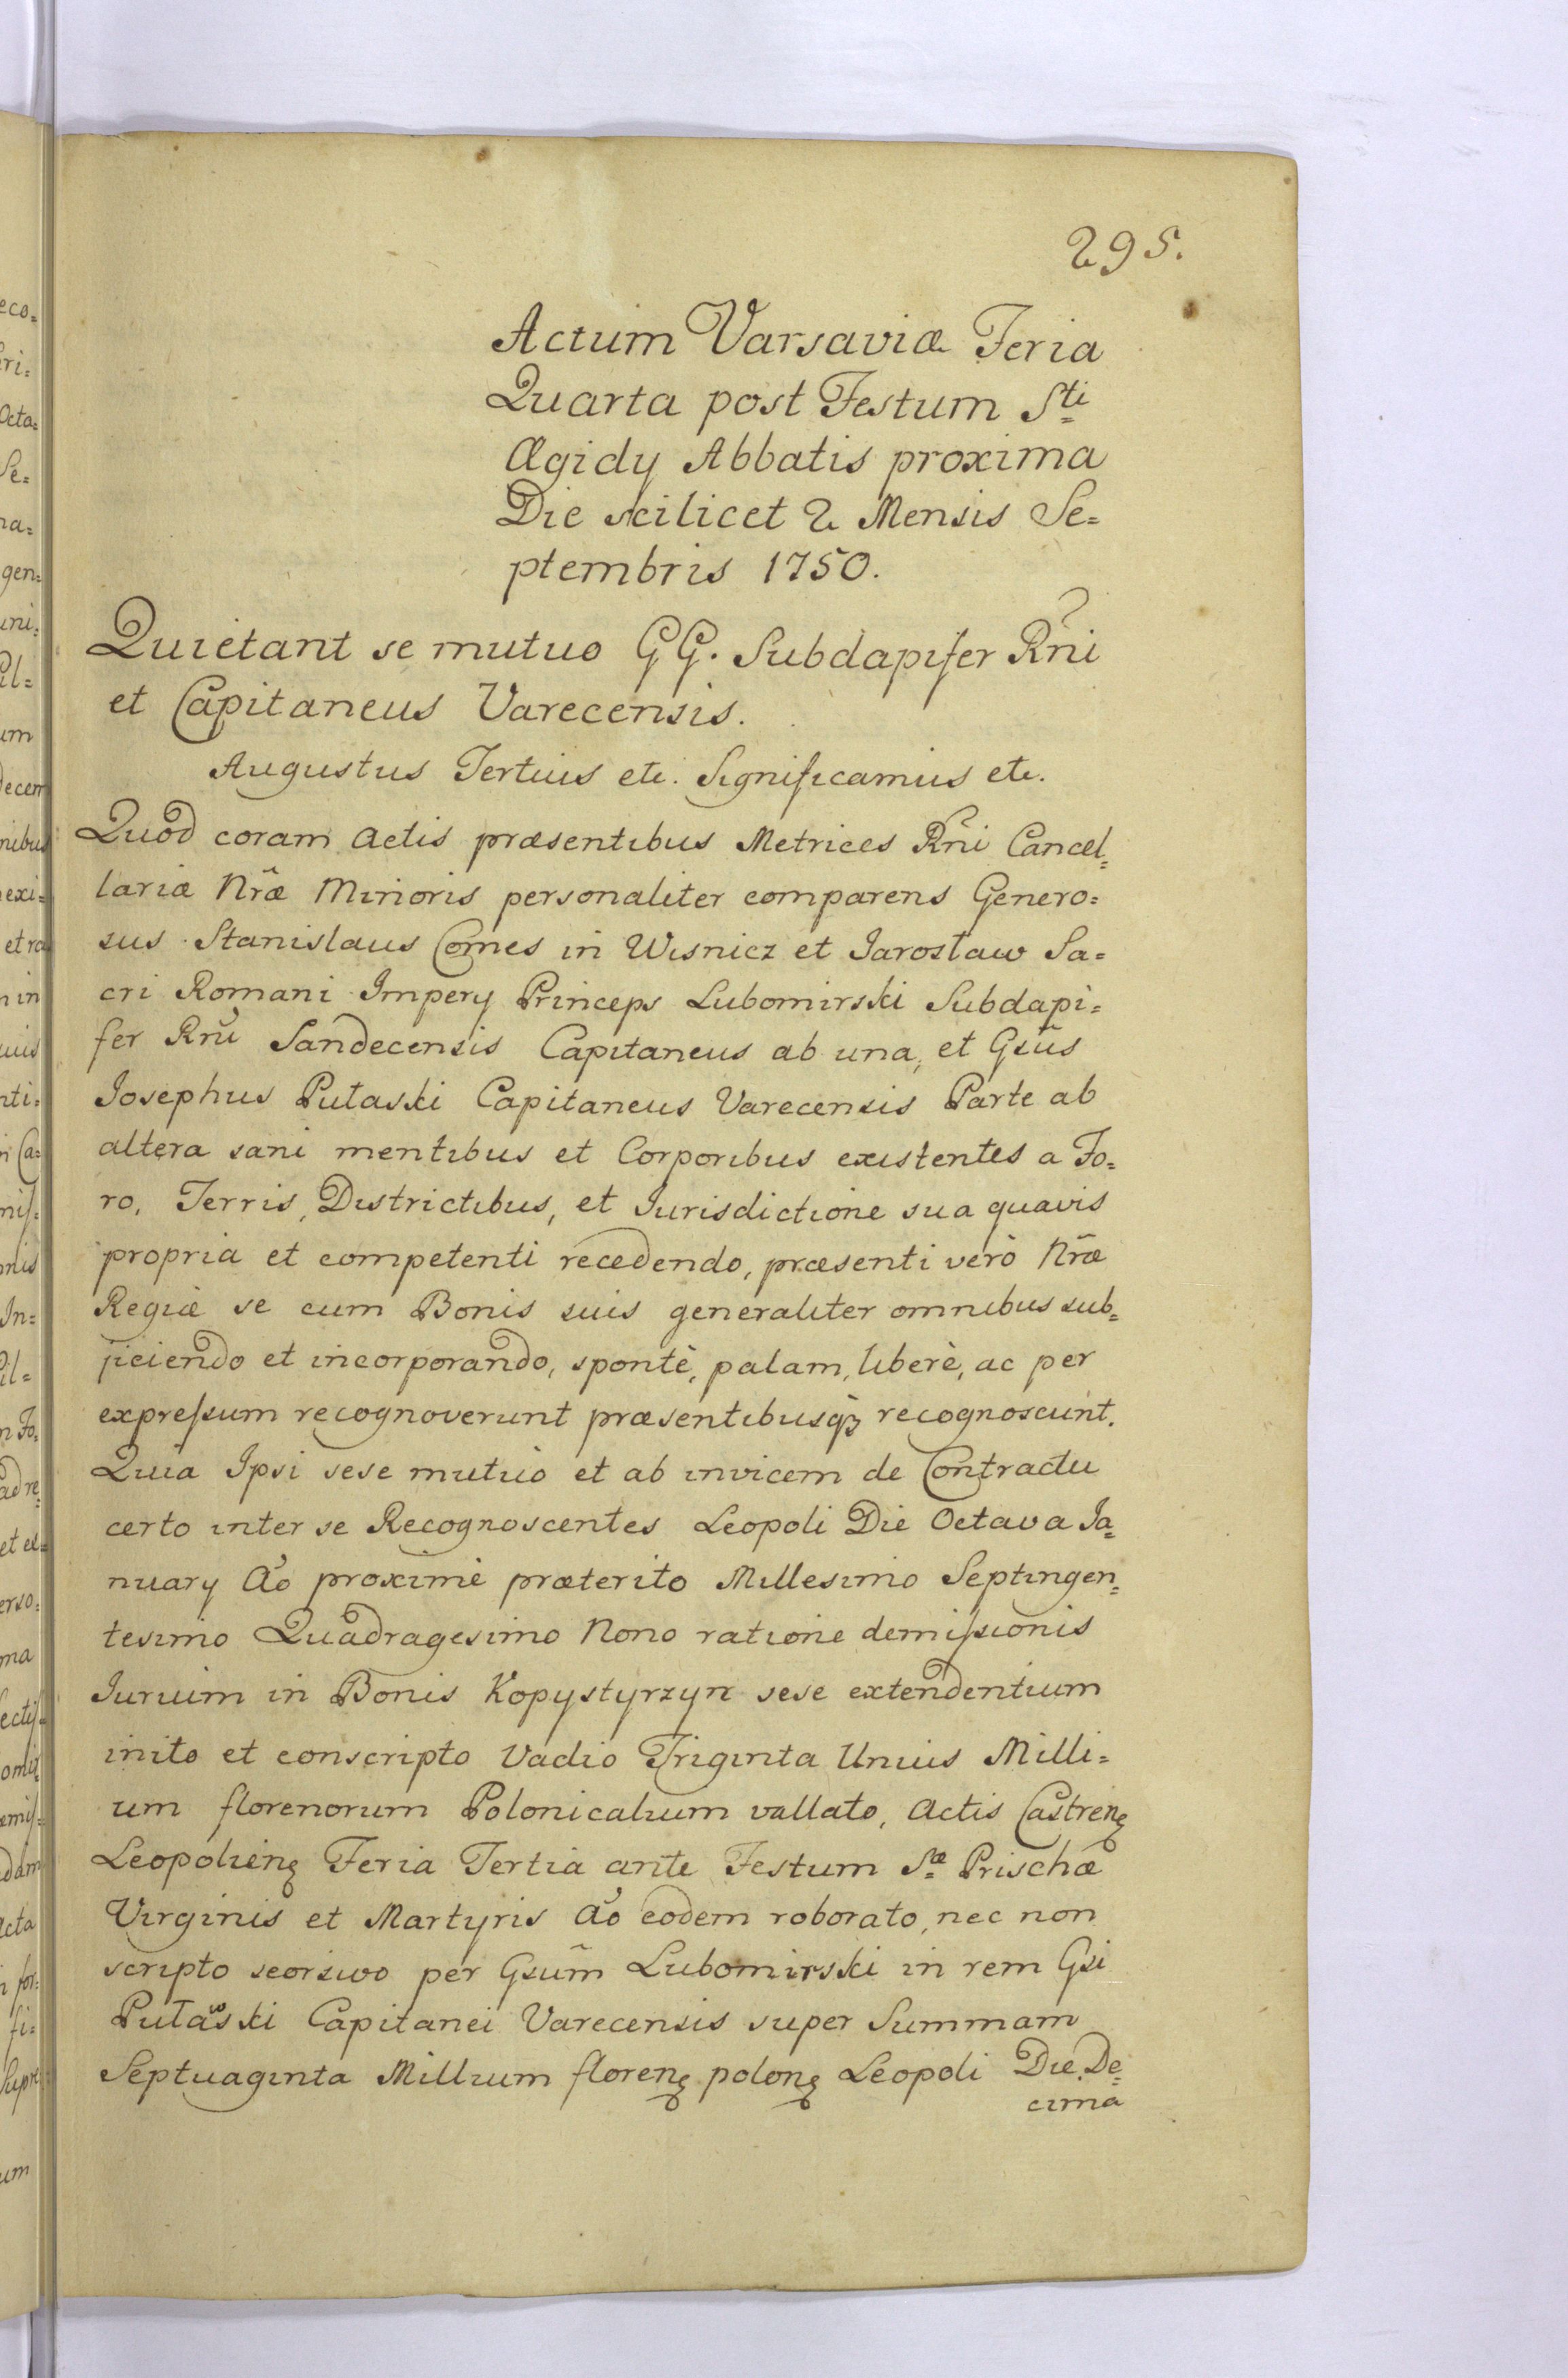 295.
Actum Varsaviæ Feria
Quarta post Festum S<sup>ti</sup>
Ægidy Abbatis proxima
Die scilicet 2 Mensis Se=
ptembris 1750.
Quietant se mutuo GG. Subdapifer Rñi
et Capitaneus Varecensis.
Augustus Tertius etc. Significamus etc.
Quod coram Actis præsentibus Metrices Rñi Cancel=
lariæ Nræ Minoris personaliter comparens Genero=
sus Stanislaus Comes in Wisnicz et Jarosław Sa=
cri Romani Impery Princeps Lubomirski Subdapi=
fer Rñi Sandecensis Capitaneus ab una, et Gsus
Josephus Pułaski Capitaneus Varecensis Parte ab
altera sani mentibus et Corporibus existentes a Fo=
ro, Terris, Districtibus, et Jurisdictione sua quavis
propria et competenti recedendo, præsenti verò Nræ
Regiæ se cum Bonis suis generaliter omnibus sub=
jiciendo et incorporando, spontè, palam, liberè, ac per
expressum recognoverunt præsentibusqꝫ recognoscunt.
Quia Ipsi sese mutuò et ab invicem de Contractu
certo inter se Recognoscentes Leopoli Die Octava Ja=
nuary Aõ proximè præterito Millesimo Septingen=
tesimo Quadragesimo Nono ratione demissionis
Jurium in Bonis Kopystyrzyn sese extendentium
inito et conscripto Vadio Triginta Unius Milli=
um florenorum Polonicalium vallato, Actis Castrenꝫ
Leopolienꝫ Feria Tertia ante Festum S<sup>tæ</sup> Prischæ
Virginis et Martyris Aõ eodem roborato, nec non
scripto seorsivo per Gsum Lubomirski in rem Gsi
Pułaski Capitanei Varecensis super Summam
Septuaginta Millium florenꝫ polonꝫ Leopoli Die De=
cima